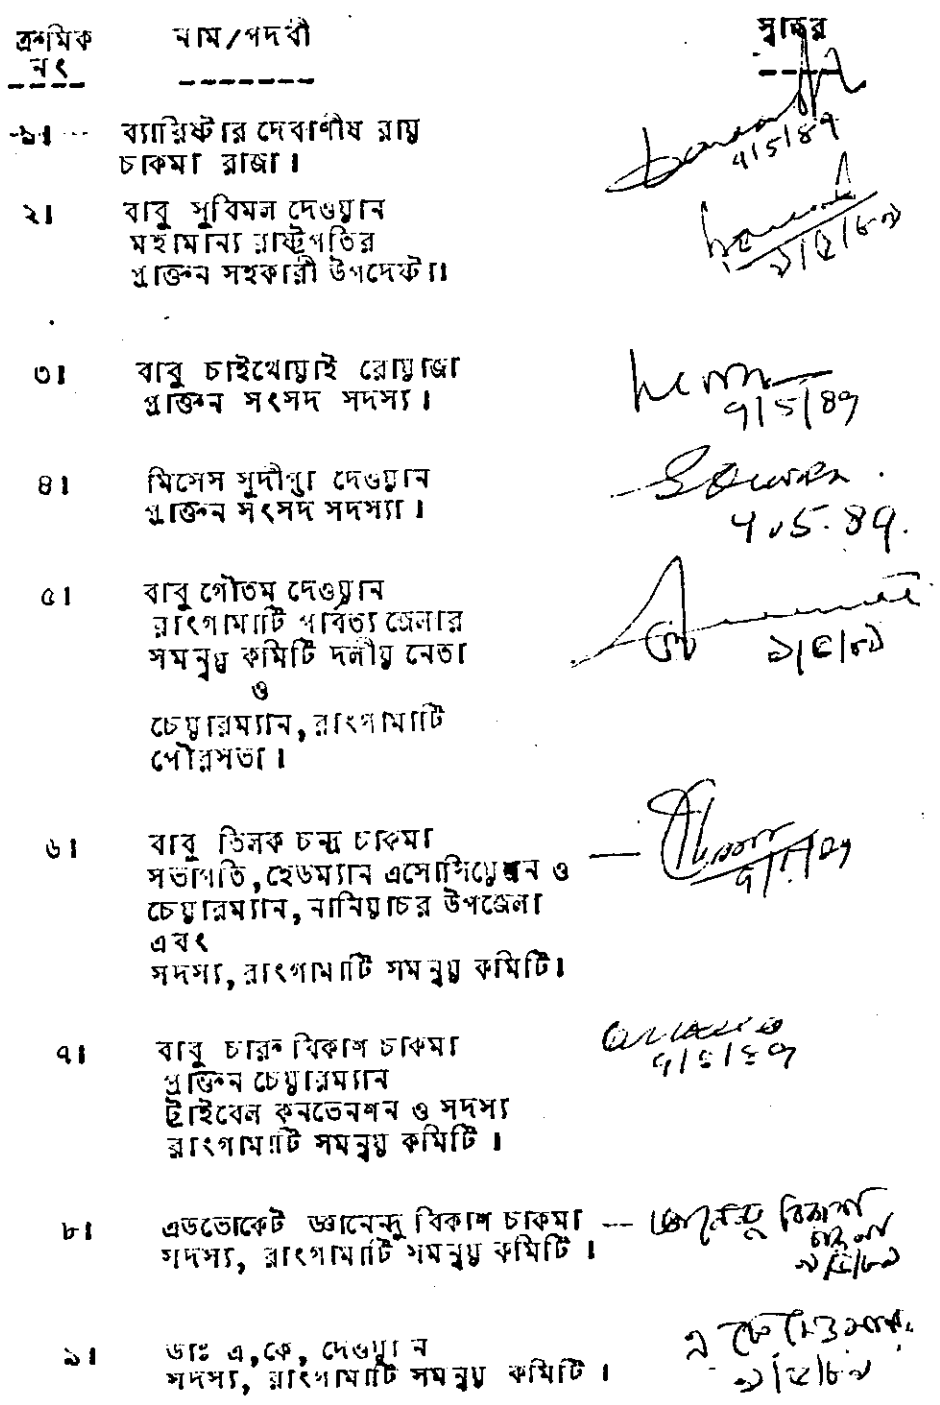 ক্রমিক নাম/পদবী স্বাক্ষর
নং
১। ব্যারিষ্টার দেবাশীষ রায়
চাকমা রাজা। ৭/5/89
২। বাবু সুবিমল দেওয়ান
মহামান্য রাষ্ট্রপতির ৯/৫/৮৯
প্রাক্তন সহকারী উপদেষ্টা।
৩। বাবু চাইথোয়াই রোয়াজা
প্রাক্তন সংসদ সদস্য। 9/5/89
৪। মিসেস সুদীপ্তা দেওয়ান
প্রাক্তন সংসদ সদস্যা। 9.5.89.
৫। বাবু গৌতম দেওয়ান
রাংগামাটি পার্বত্য জেলার
সমন্বয় কমিটি দলীয় নেতা ৯/৫/৮৯
ও
চেয়ারম্যান, রাংগামাটি
পৌরসভা।
৬। বাবু তিলক চন্দ্র চাকমা
সভাপতি, হেডম্যান এসোসিয়েশন ও
চেয়ারম্যান, নানিয়াচর উপজেলা
এবং
সদস্য, রাংগামাটি সমন্বয় কমিটি।
৭। বাবু চারু বিকাশ চাকমা
প্রাক্তন চেয়ারম্যান 9/5/89
ট্রাইবেল কনভেনশন ও সদস্য
রাংগামাটি সমন্বয় কমিটি।
৮। এডভোকেট জ্ঞানেন্দু বিকাশ চাকমা -- জ্ঞানেন্দু বিকাশ
সদস্য, রাংগামাটি সমন্বয় কমিটি। চাকমা
৯/৫/৮৯
৯। ডাঃ এ,কে, দেওয়ান এ কে দেওয়ান
সদস্য, রাংগামাটি সমন্বয় কমিটি। ৯/৫/৮৯